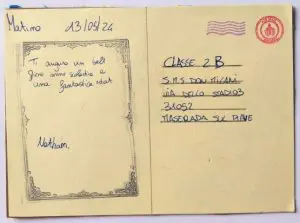 Matino 13/05/24
Ti auguro un bel
fine anno scolastico e
una fantastica estate
Nathan.
CLASSE 2B
S.M.S DON MILANI
VIA DELLO STADIO 3
31052
MASERADA SUL PIAVE